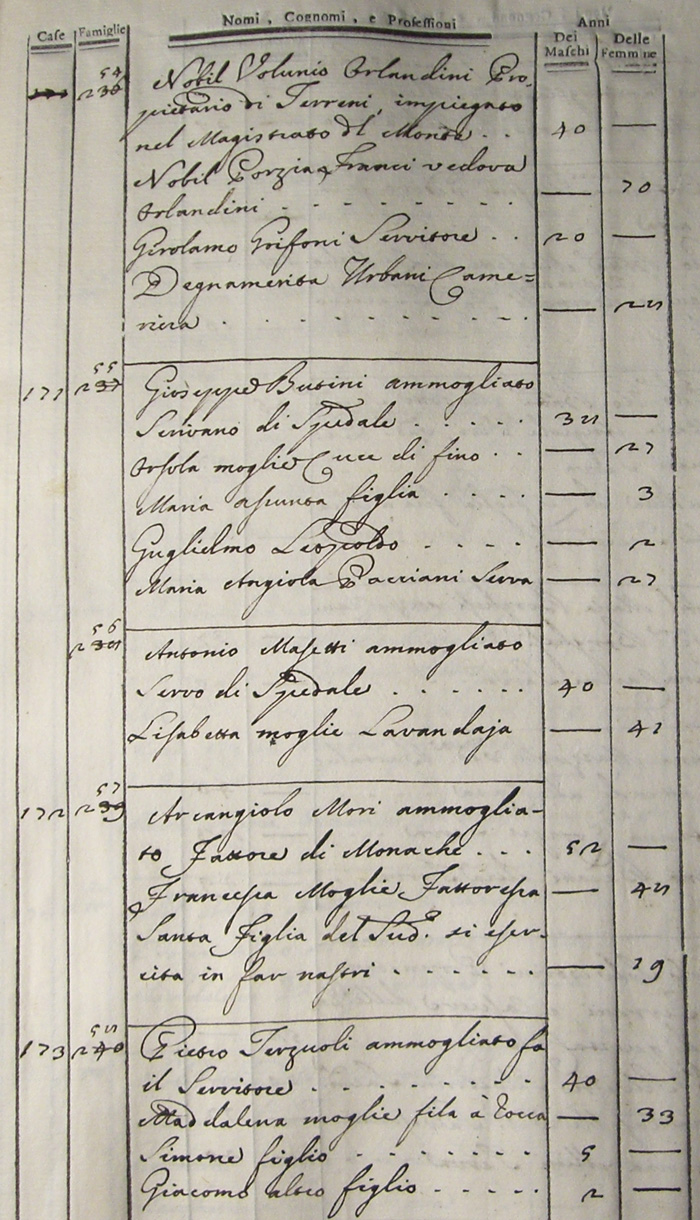 Nomi, Cognomi, e Professioni
Anni
Case Famiglie Dei Maschi Delle Femmine
54
236 Nobil Volunio Orlandini Pro-
pietario di Terreni, impiegato
nel Magistrato del Monte . . 40 —
Nobil Porzia Franci vedova
Orlandini - - - - - - - — 70
Girolamo Grifoni Servitore . . 20 —
Degnamerita Urbani Came=
riera . . . . . . . . — 28
55
171 237 Gioseppe Butini ammogliato
Scrivano di Spedale . . . . . 38 —
Orsola moglie Cuce di fino . . — 27
Maria Assunta figlia . . . . — 3
Guglielmo Leopoldo - - - - — 2
Maria Angiola Pacciani Serva — 27
56
238 Antonio Masetti ammogliato
Servo di Spedale . . . . . . 40 —
Lisabetta moglie Lavandaja — 41
57
172 239 Arcangiolo Mori ammoglia-
to Fattore di Monache . . . 52 —
Francesca Moglie Fattoressa — 48
Santa Figlia del Sud.o si eser-
cita in far nastri - - - - - - — 19
58
173 240 Pietro Terzuoli ammogliato fa
il Servitore . . . . . . . . 40 —
Maddalena moglie fila à Rocca — 33
Simone figlio - - - - - - - 5
Giacomo altro figlio - - - - - 2